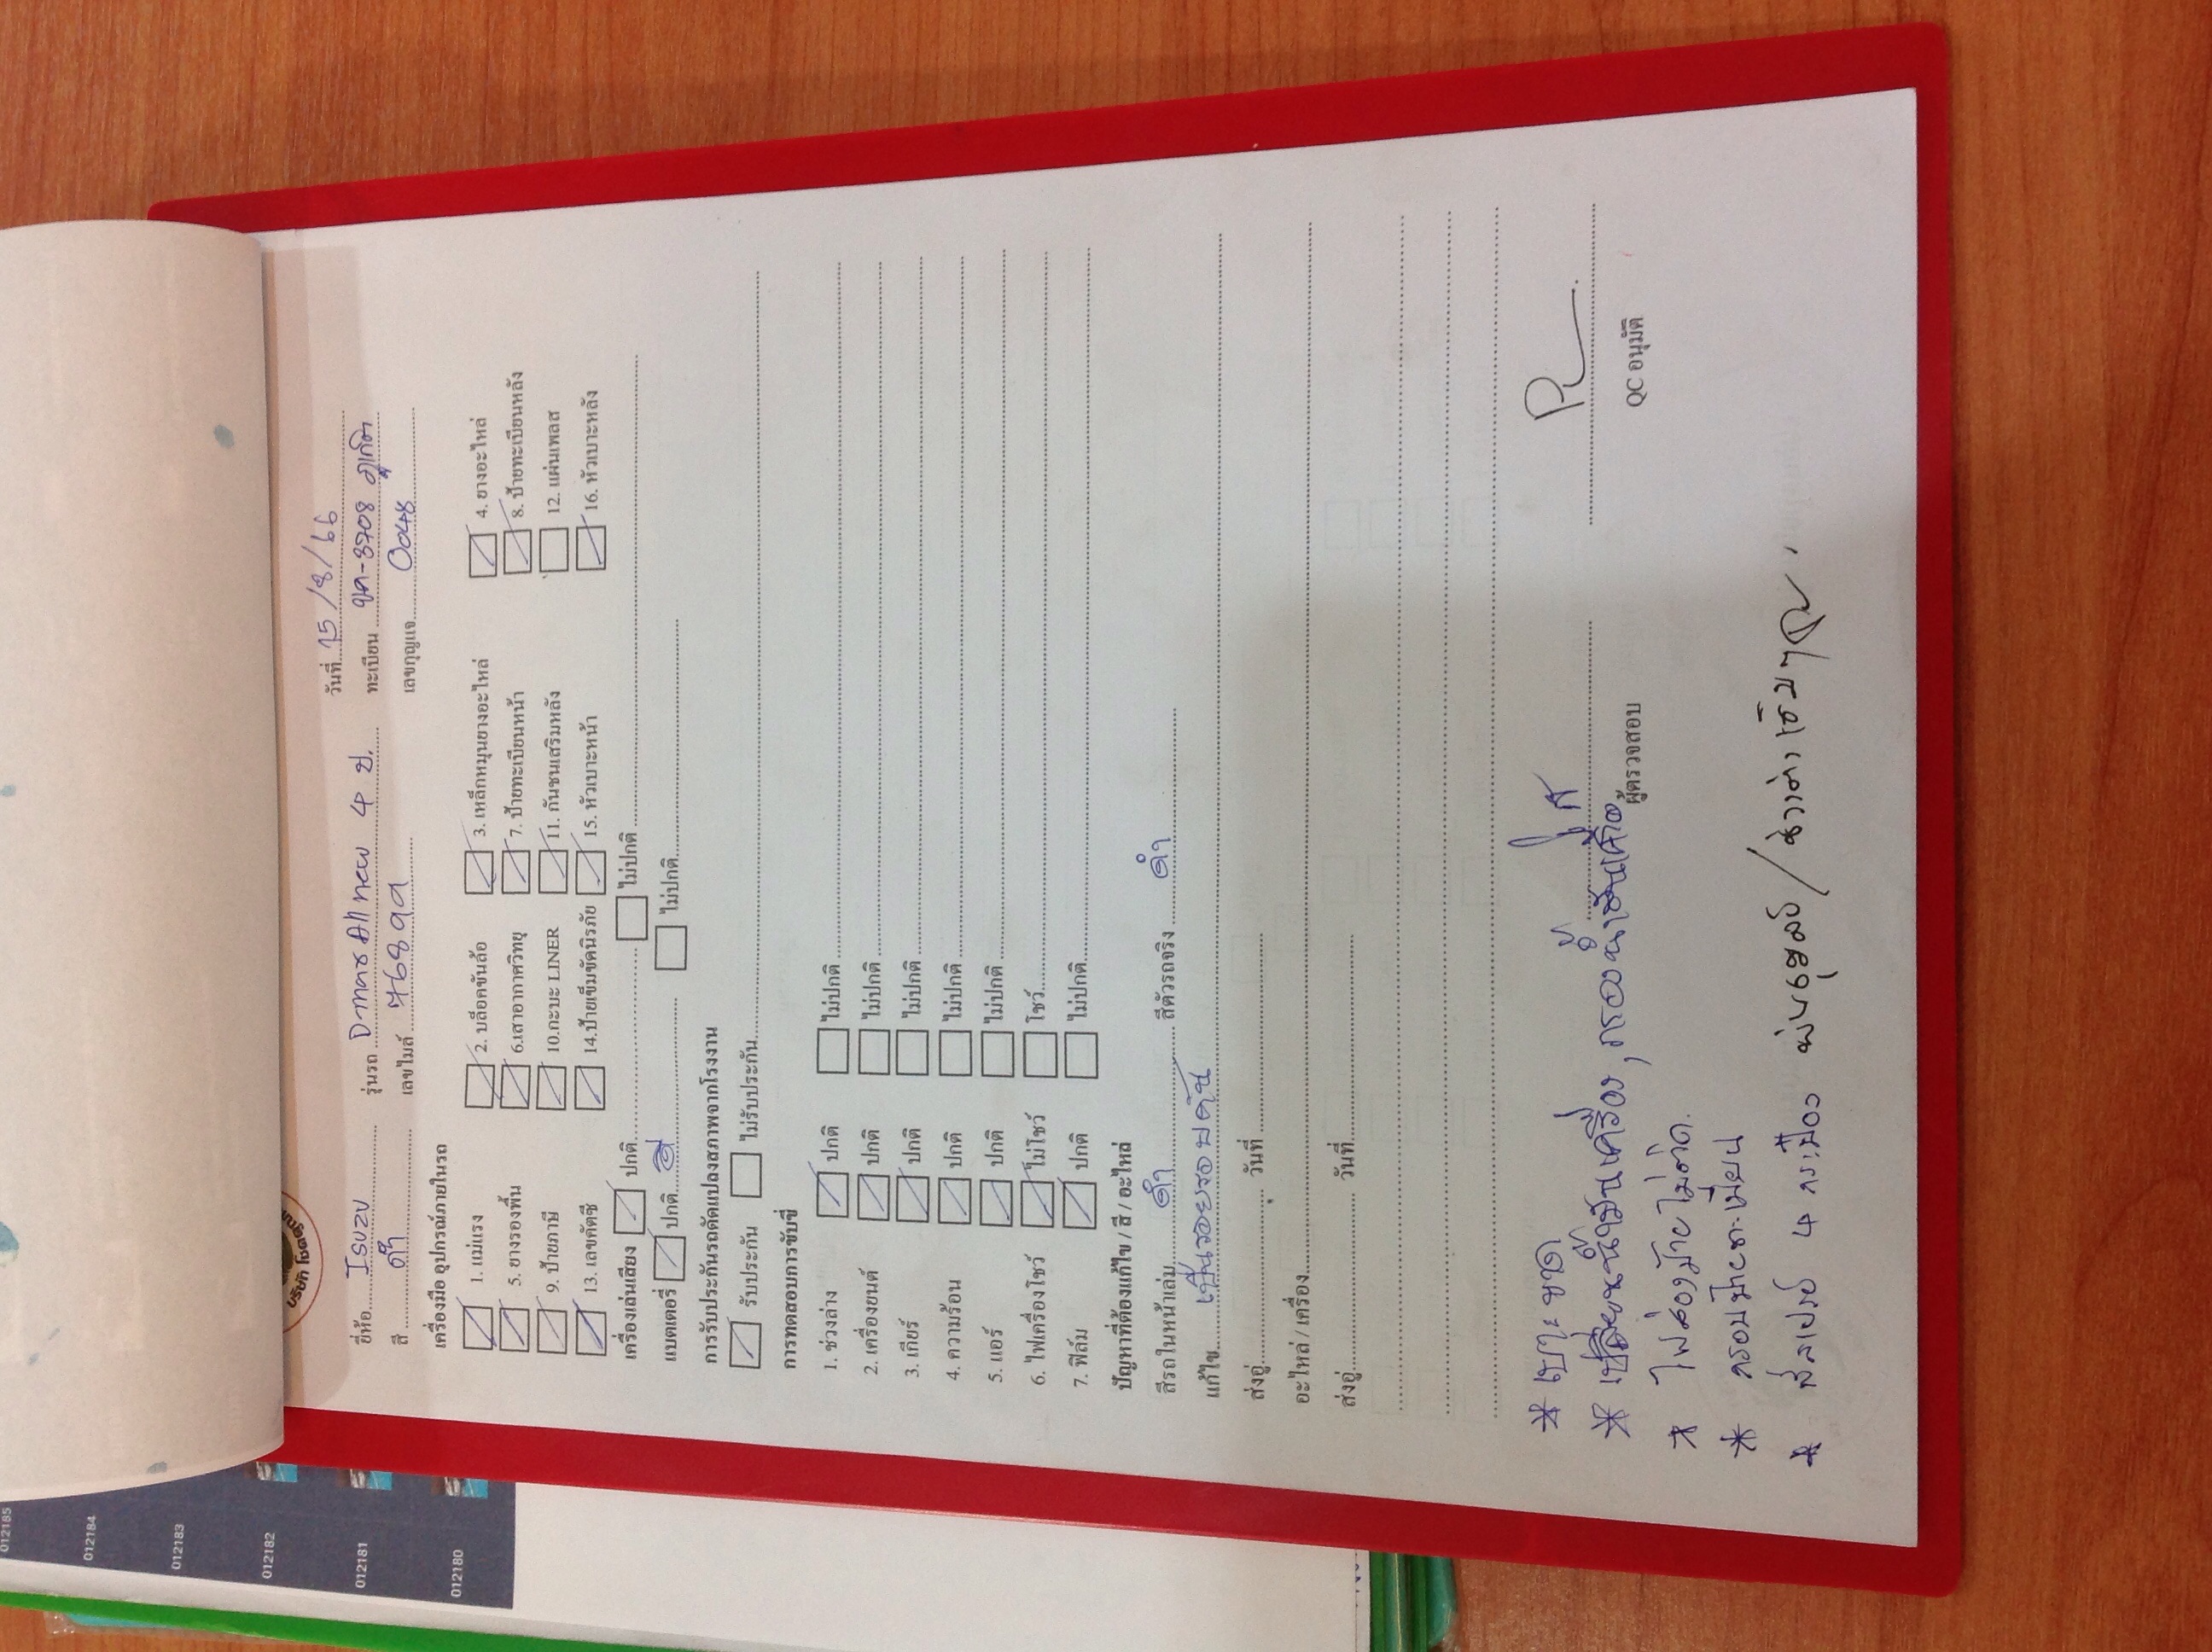 วันที่ 15/8/66
ยี่ห้อ Isuzu รุ่นรถ Dmax All new 4 ป. ทะเบียน ขค-3708 ภูเก็ต
สี ดำ เลขไมล์ 76899 เลขกุญแจ 0048
เครื่องมือ อุปกรณ์ภายในรถ
1. แม่แรง 2. บล็อคขันล้อ 3. เหล็กหมุนยางอะไหล่ 4. ยางอะไหล่
5. ยางรองพื้น 6.เสาอากาศวิทยุ 7. ป้ายทะเบียนหน้า 8. ป้ายทะเบียนหลัง
9. ป้ายภาษี 10.กะบะ LINER 11. กันชนเสริมหลัง 12. แผ่นเพลส
13. เลขคัดซี 14.ป้ายเข็มขัดนิรภัย 15. หัวเบาะหน้า 16. หัวเบาะหลัง
เครื่องเล่นเสียง ปกติ ไม่ปกติ
แบตเตอรี่ ปกติ ไม่ปกติ
การรับประกันรถดัดแปลงสภาพจากโรงงาน
รับประกัน ไม่รับประกัน
การทดสอบการขับขี่
1. ช่วงล่าง ปกติ ไม่ปกติ
2. เครื่องยนต์ ปกติ ไม่ปกติ
3. เกียร์ ปกติ ไม่ปกติ
4. ความร้อน ปกติ ไม่ปกติ
5. แอร์ ปกติ ไม่ปกติ
6. ไฟเครื่องโชว์ ไม่โชว์ โชว์
7. ฟิล์ม ปกติ ไม่ปกติ
ปัญหาที่ต้องแก้ไข / สี / อะไหล่
สีรถในหน้าเล่ม ดำ สีตัวรถจริง ดำ
แก้ไข เป็นรอยรอบคัน
ส่งอู่ วันที่
อะไหล่ / เครื่อง
ส่งอู่ วันที่
ผู้ตรวจสอบ QC อนุมัติ
* เบาะ ขาด
* เปลี่ยนน้ำมันเครื่อง, กรอง
* ไฟส่องป้าย ไม่ติด.
* กรอบป้ายทะเบียน
* สีสเปรย์ 4 กระป๋อง
012185
012184
012183
012182
012181
012180